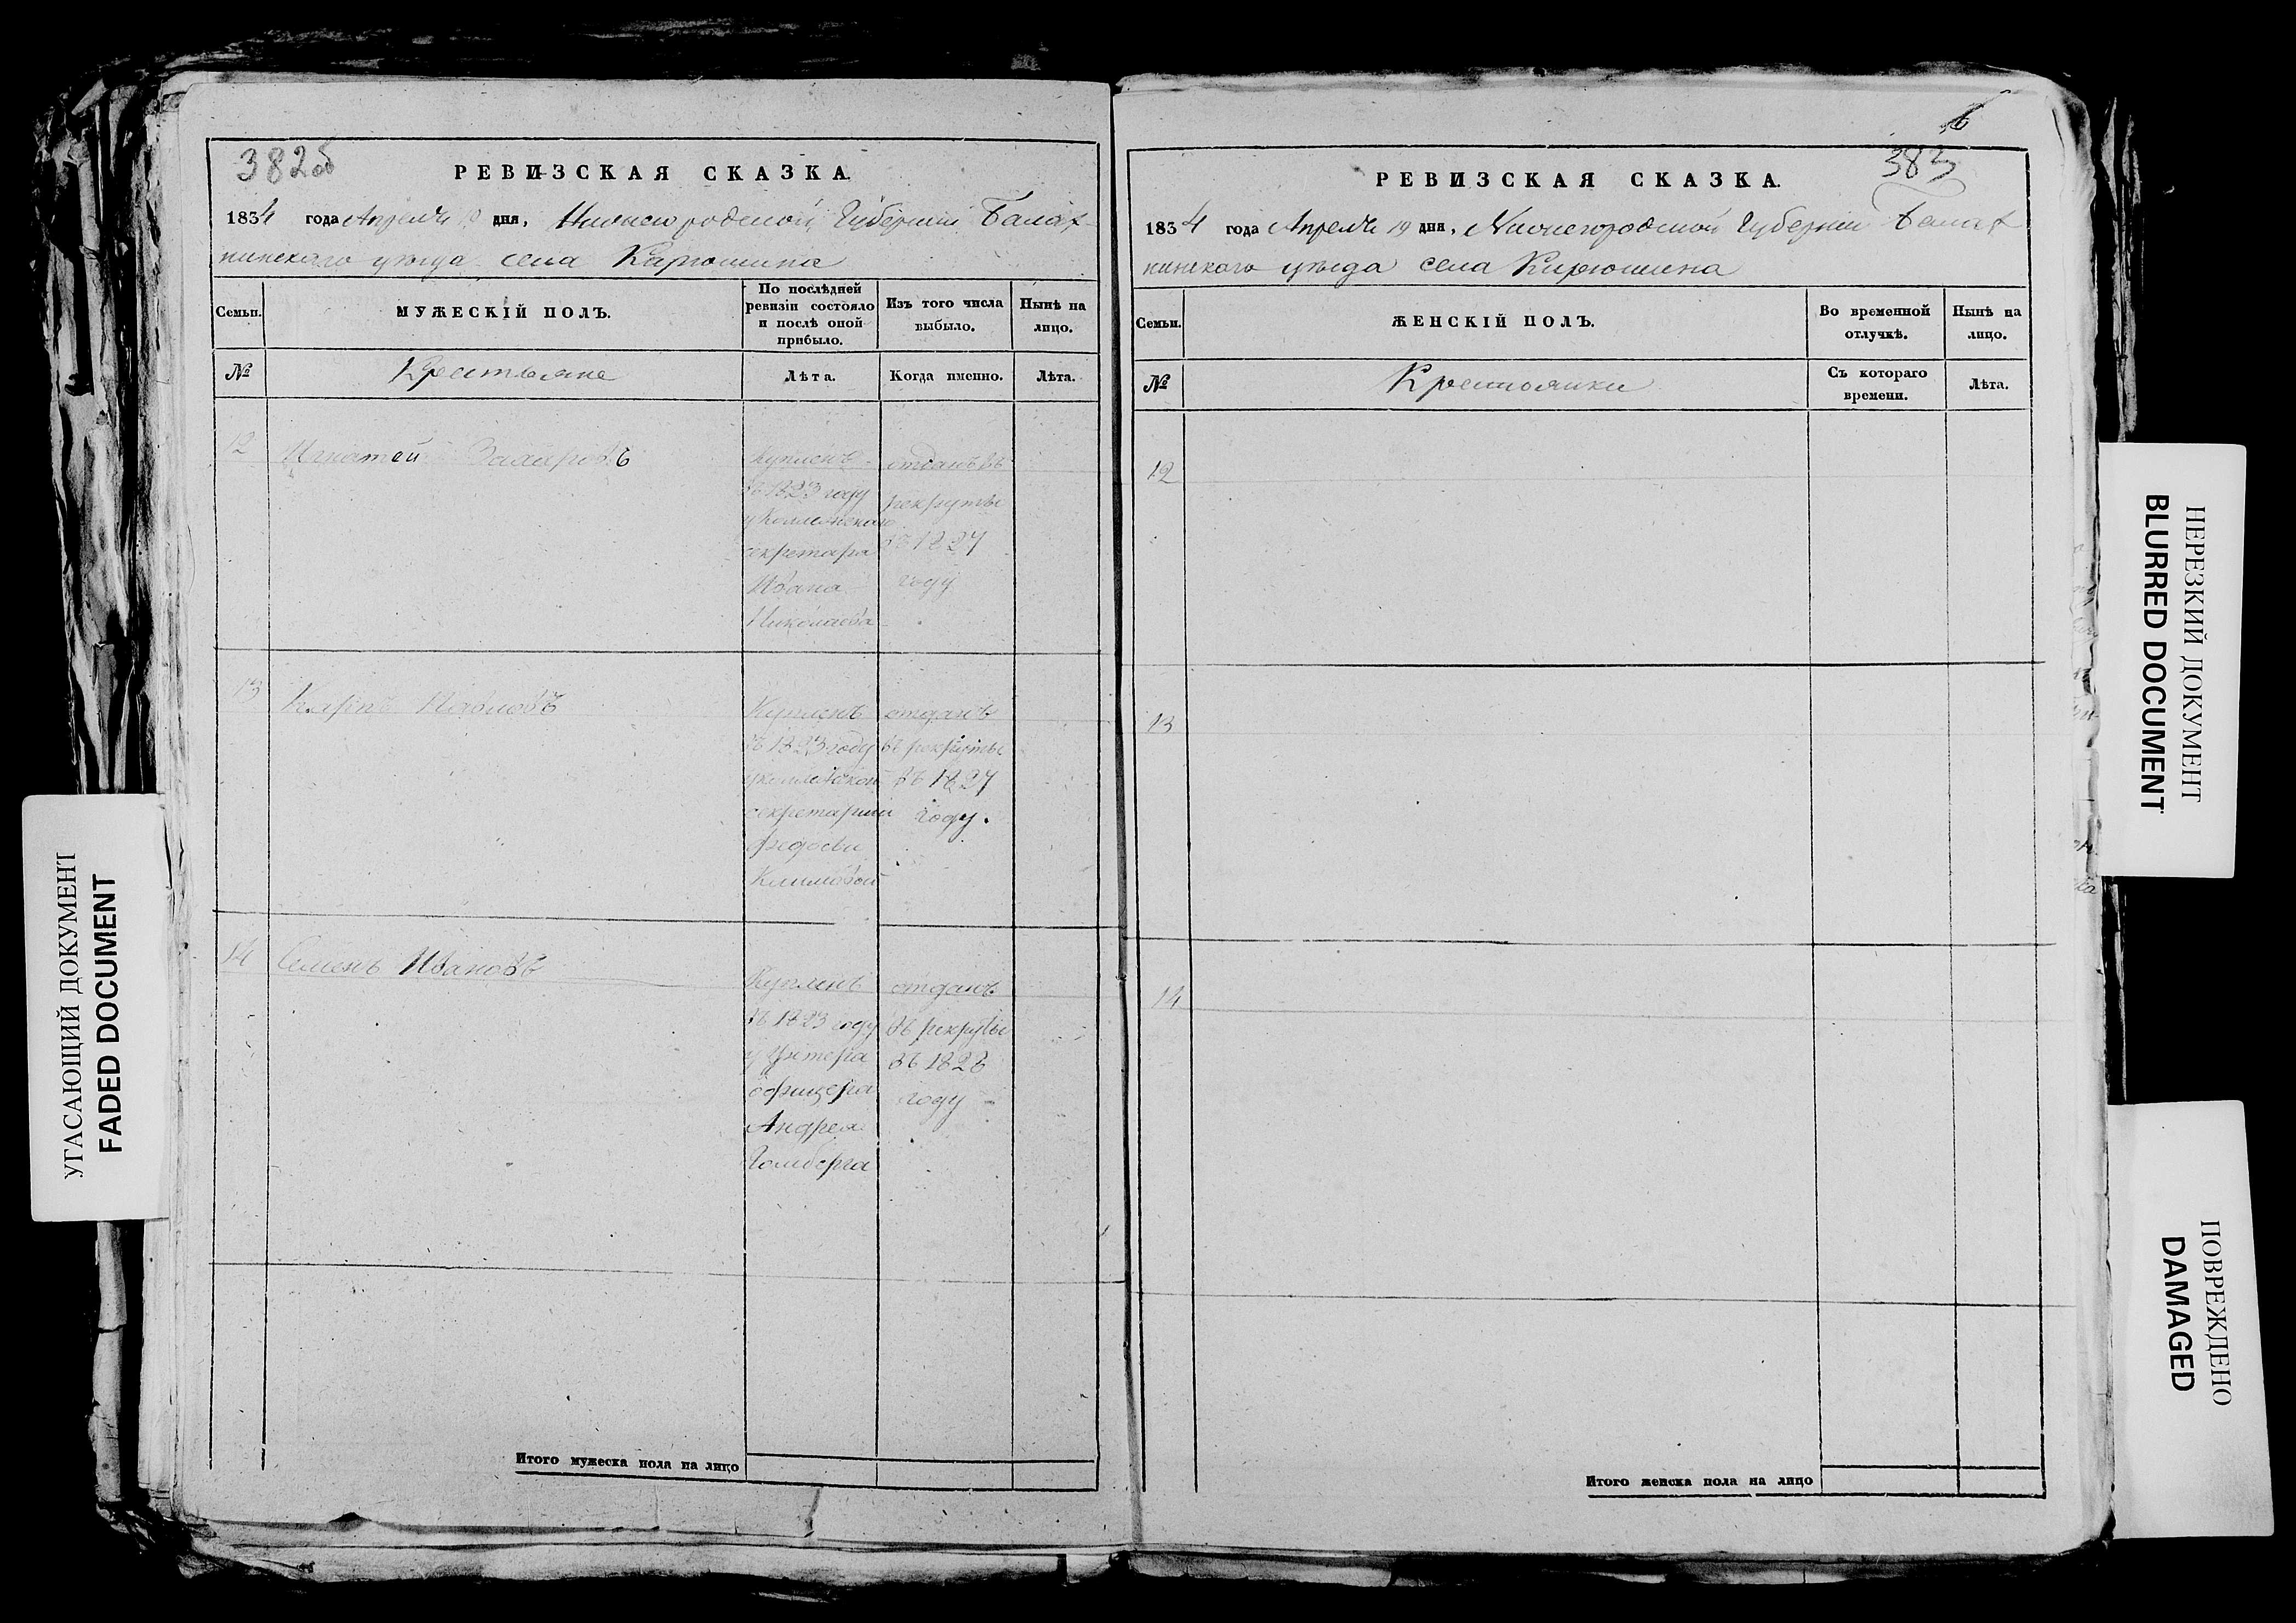 382об
РЕВИЗСКАЯ СКАЗКА.
1834 года Апреля 19 дня, Нижегородской Губернии Балах-
нинского уезда села Кирюшина
Семьи.
МУЖЕСКІЙ ПОЛЪ.
По послѣдней ревизіи состояло и послѣ оной прибыло.
Изъ того числа выбыло.
Нынѣ на лицо.
№
Крестьяне
Лѣта.
Когда именно.
Лѣта.
12
Игнатей Захаровъ
Купленъ
въ 1823 году
у Коллежскаго
секретара
Ивана
Николаева
отданъ въ
рекруты
въ 1827
году
13
Карпъ Павловъ
Купленъ
въ 1823 году
у коллежской
секретарши
Федосьи
Климовой
отданъ
въ рекруты
въ 1827
году.
14
Семенъ Ивановъ
Купленъ
въ 1823 году
у Унтера
офицера
Андрея
отданъ
въ рекруты
въ 1828
году
Итого мужеска пола на лицо
6
383
РЕВИЗСКАЯ СКАЗКА.
1834 года Апреля 19 дня, Нижегородской Губернии Балах
нинского уезда села Кирюшина
Семьи.
ЖЕНСКІЙ ПОЛЪ.
Во временной отлучкѣ.
Нынѣ на лицо.
№
Крестьянки
Съ котораго времени.
Лѣта.
12
13
14
Итого женска пола на лицо
УГАСАЮЩИЙ ДОКУМЕНТ
FADED DOCUMENT
НЕРЕЗКИЙ ДОКУМЕНТ
BLURRED DOCUMENT
ПОВРЕЖДЕНО
DAMAGED